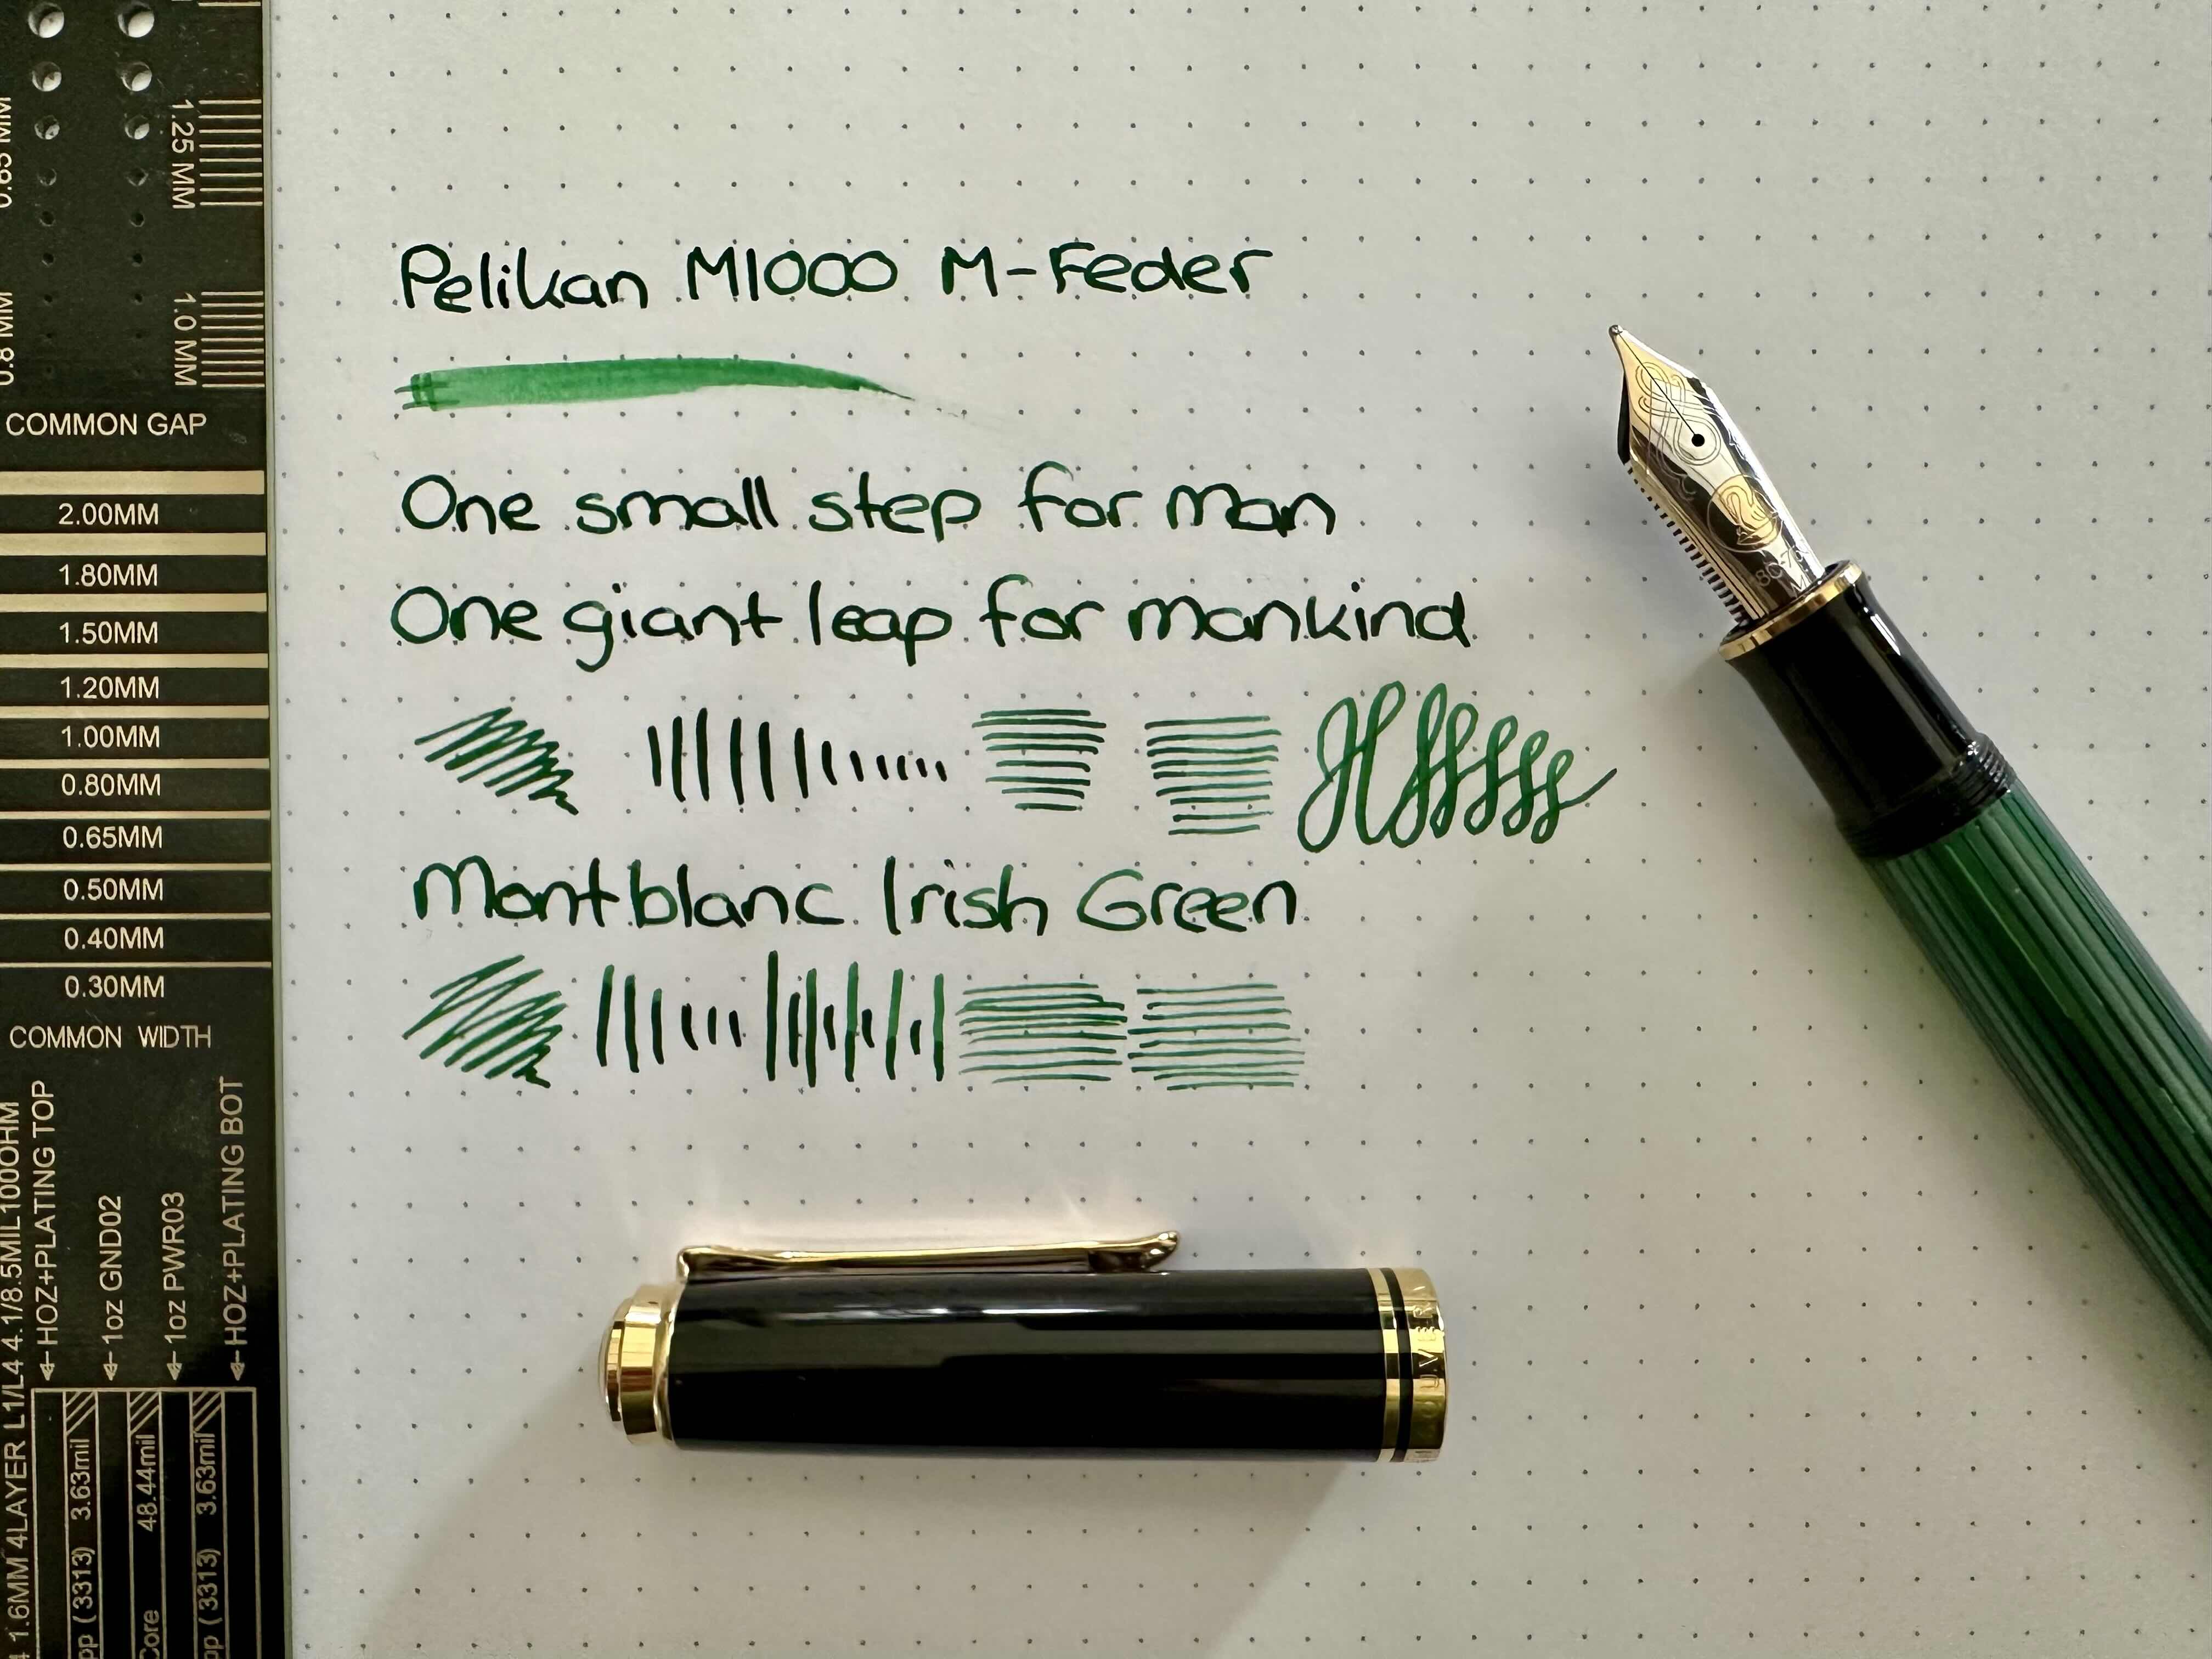 Pelikan M1000 M-Feder
One small step for man
One giant leap for mankind
Montblanc Irish Green
1.25 MM
1.0 MM
0.8 MM
COMMON GAP
2.00MM
1.80MM
1.50MM
1.20MM
1.00MM
0.80MM
0.65MM
0.50MM
0.40MM
0.30MM
COMMON WIDTH
1.6MM 4LAYER L1/L4 4.1/8.5MIL100OHM
HOZ+PLATING TOP
1oz GND02
1oz PWR03
HOZ+PLATING BOT
pp (3313) 3.63mil
Core 48.44mil
pp (3313) 3.63mil